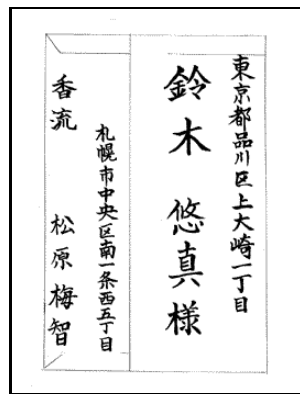 東京都品川区上大崎一丁目
鈴木 悠真様
札幌市中央区南一条西五丁目
香流 松原梅智